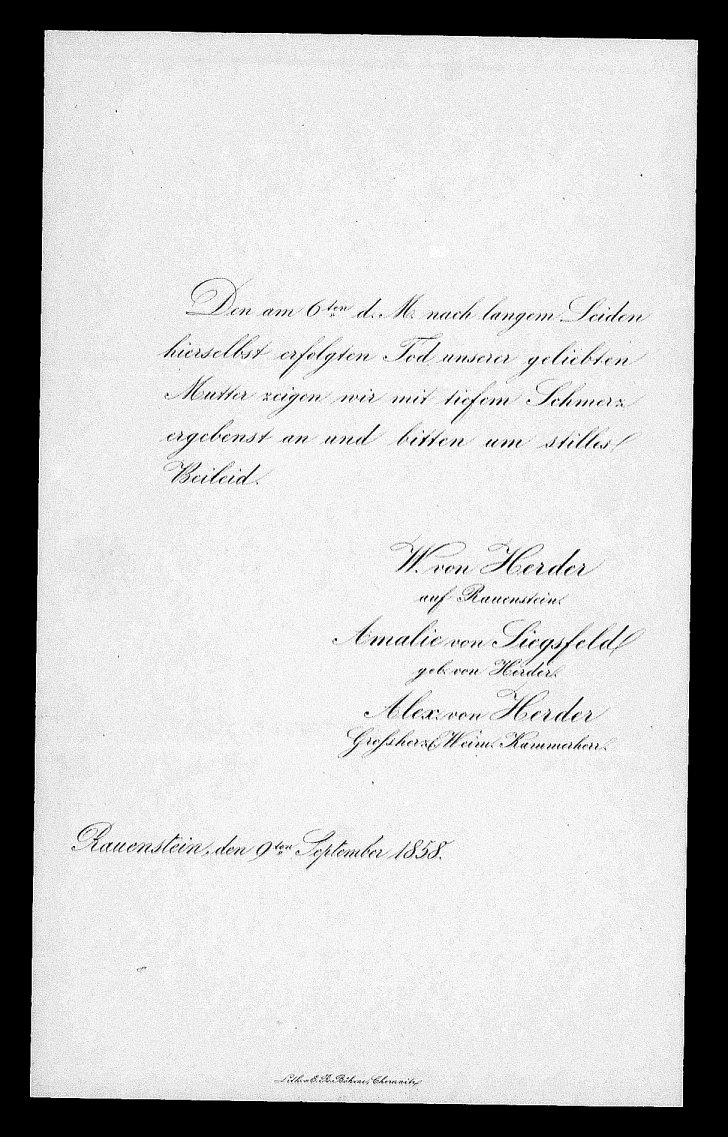 Den am 6ten d. M. nach langem Leiden
hierselbst erfolgten Tod unserer geliebten
Mutter zeigen wir mit tiefem Schmerz
ergebenst an und bitten um stilles
Beileid.
W. von Herder
auf Rauenstein.
Amalie von Liegsfeld
geb. von Herder.
Alex. von Herder
Großherzl. Weim. Kammerherr.
Rauenstein, den 9ten September 1858.
Lith. v. Böhme, Chemnitz